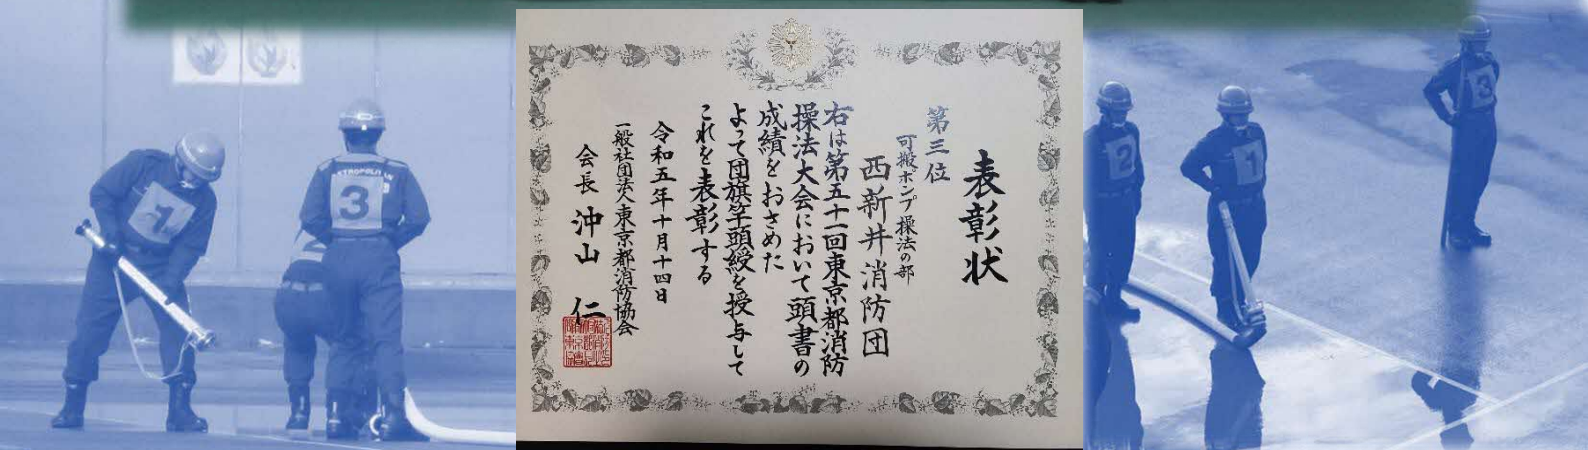 表彰状
第三位
可搬ポンプ操法の部
西新井消防団
右は第五十一回東京都消防
操法大会において頭書の
成績をおさめた
よって団旗竿頭綬を授与して
これを表彰する
令和五年十月十四日
一般社団法人東京都消防協会
会長 沖山 仁
1
METROPOLITAN
3
2
1
3